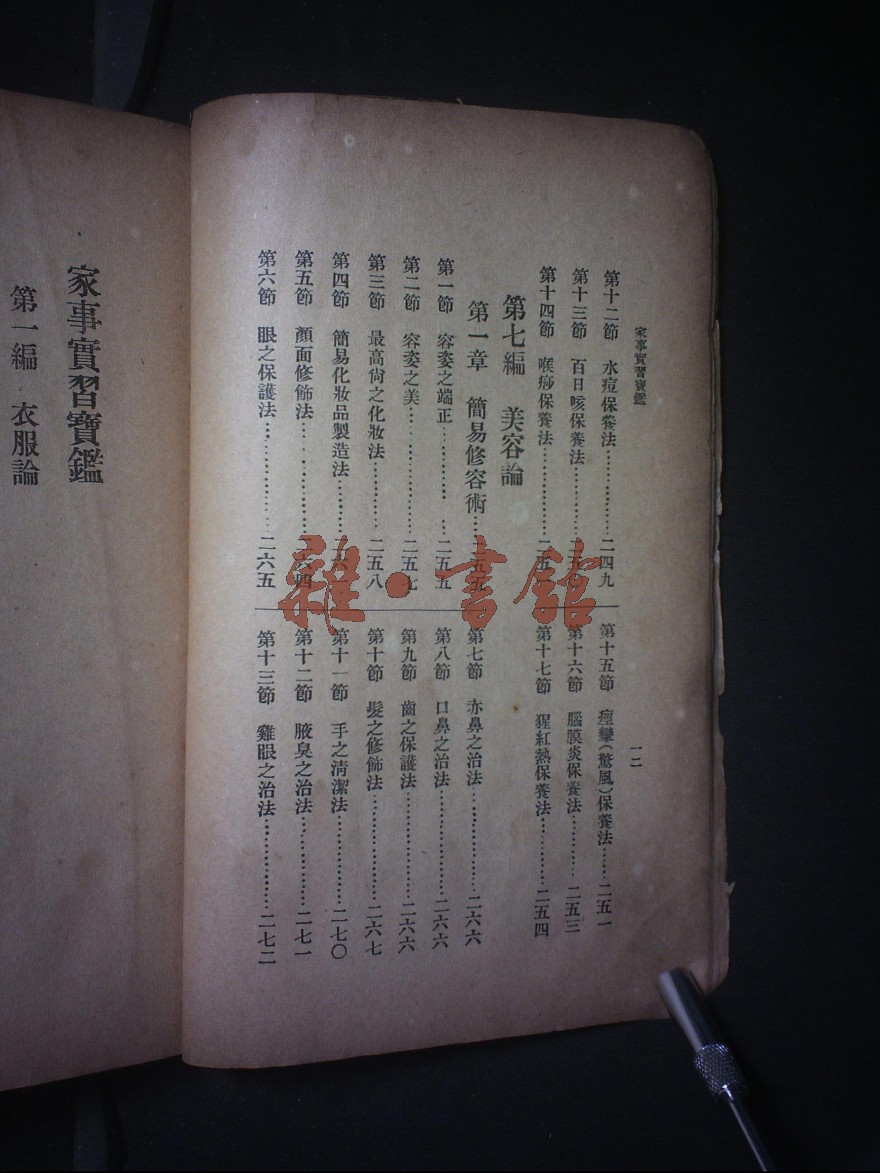 家事實習寶鑑
一二
第十二節　水痘保養法……………二四九
第十三節　百日咳保養法…………二五
第十四節　喉痧保養法……………二五
第十五節　痙攣（驚風）保養法……二五一
第十六節　腦膜炎保養法…………二五三
第十七節　猩紅熱保養法…………二五四
第七編　美容論
第一章　簡易修容術……二五五
第一節　容姿之端正……………二五五
第二節　容姿之美………………二五七
第三節　最高尙之化妝法…………二五八
第四節　簡易化妝品製造法………二六
第五節　顏面修飾法……………二六四
第六節　眼之保護法……………二六五
第七節　赤鼻之治法……………二六六
第八節　口鼻之治法……………二六六
第九節　齒之保護法……………二六六
第十節　髮之修飾法……………二六七
第十一節　手之淸潔法……………二七〇
第十二節　腋臭之治法……………二七一
第十三節　雞眼之治法……………二七二
家事實習寶鑑
第一編　衣服論
雜·書館